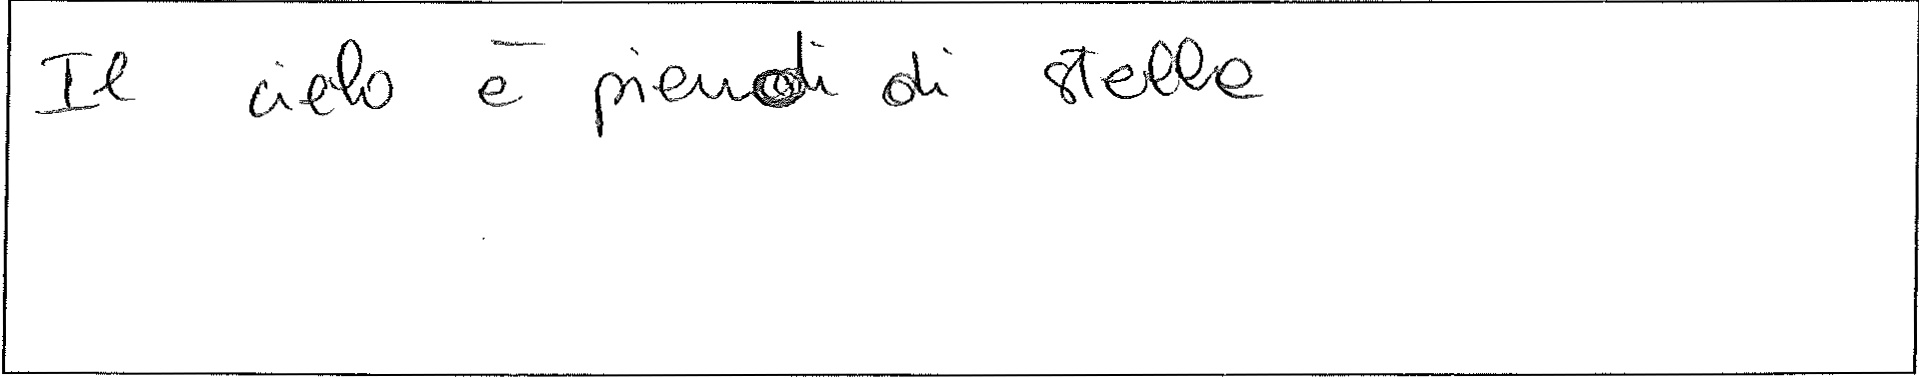 Il cielo è pieno di di stelle